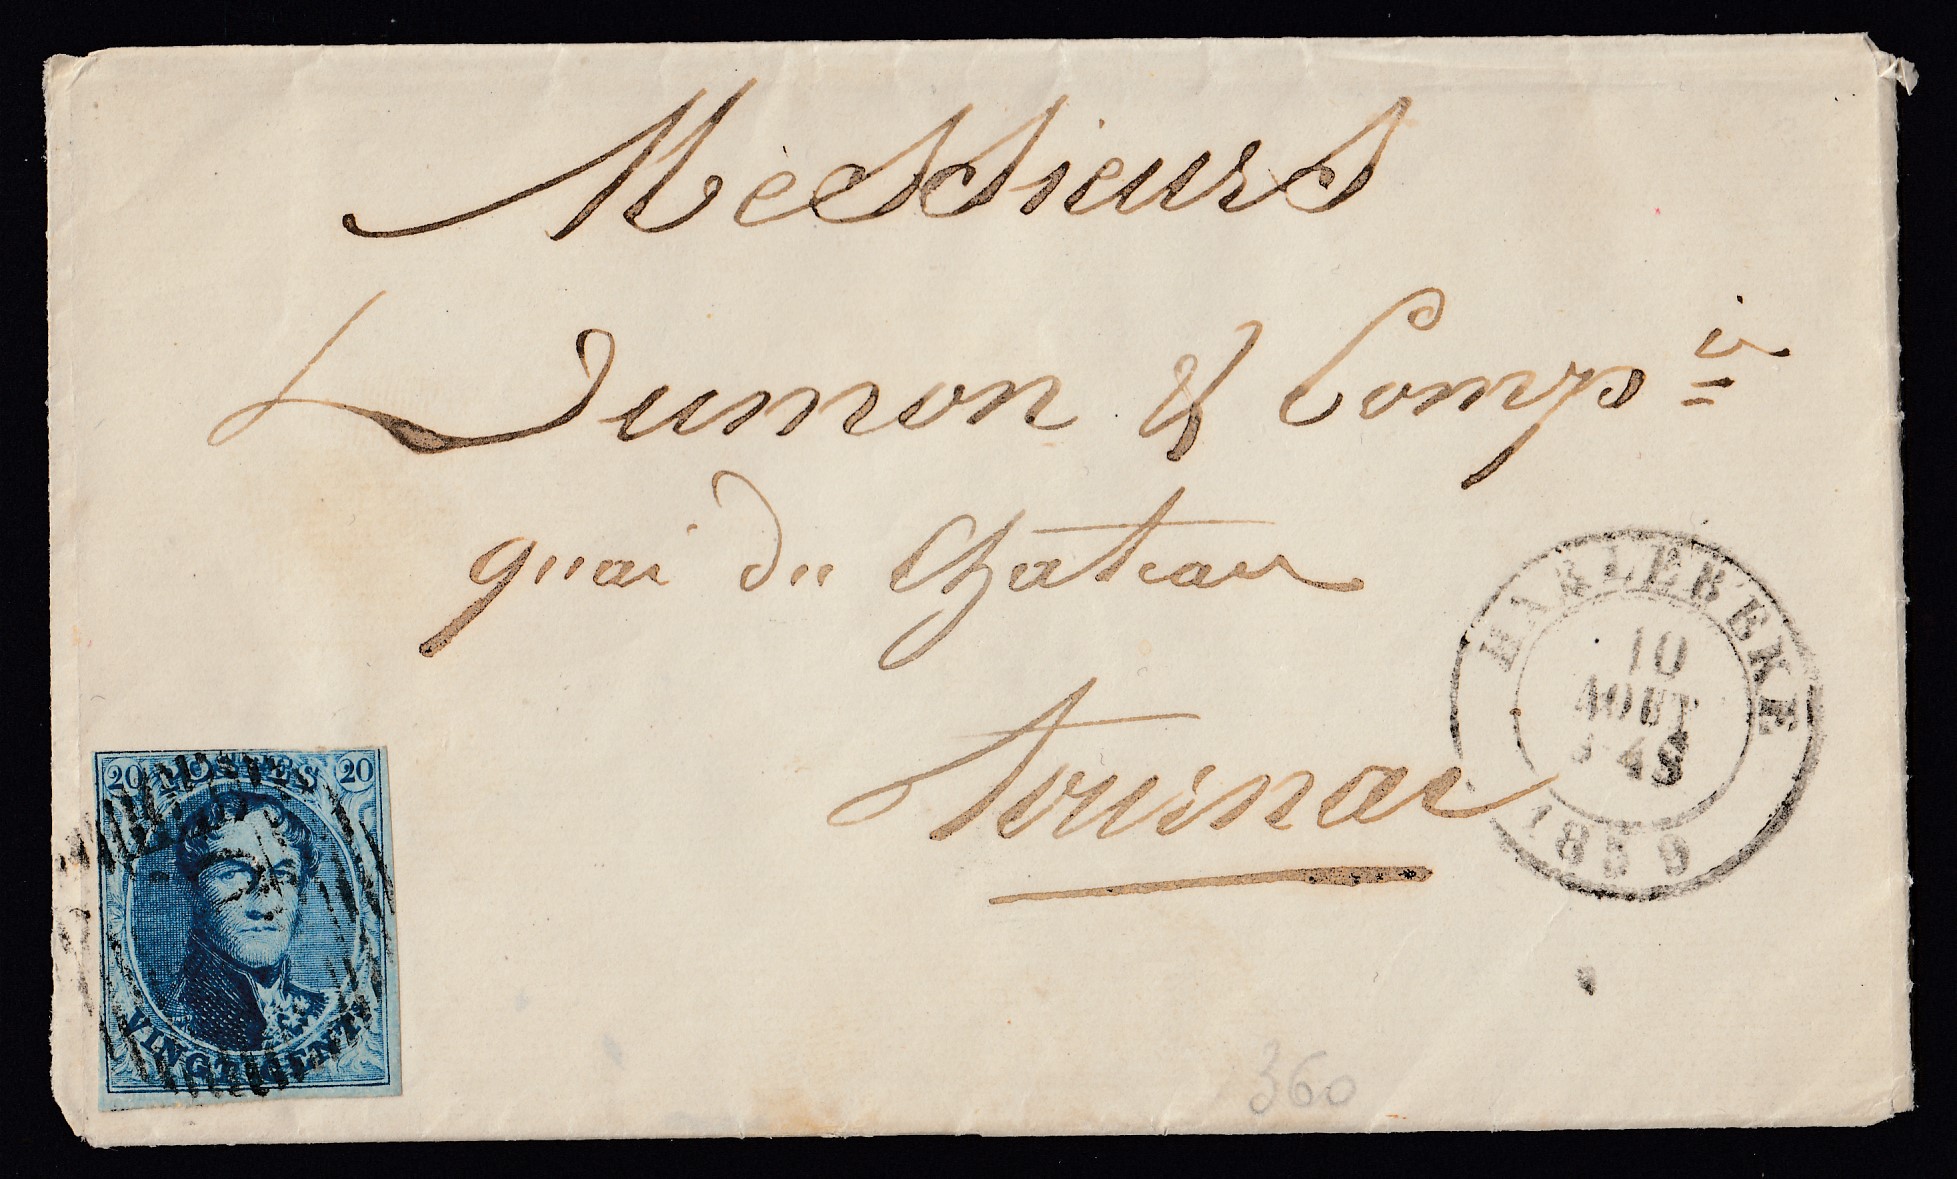 Messieurs
Dumon & Comp ie
quai du Château
Tournai
HARLEBEKE
10
AOUT
4S
1859
20 POSTES 20
VINGT CENTS
360